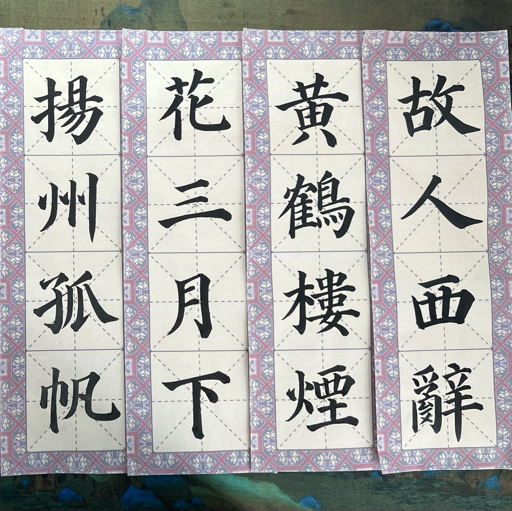 故人西辭
黄鶴樓煙
花三月下
揚州孤帆